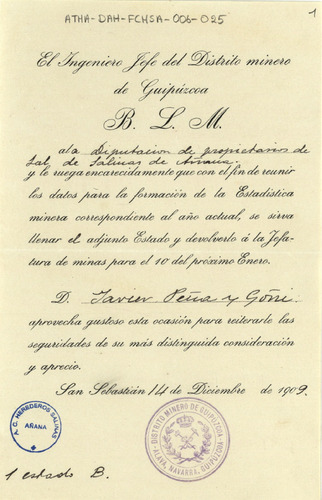 ATHA-DAH-FCHSA-006-025
1
El Ingeniero Jefe del Distrito minero
de Guipúzcoa
B. L. M.
á la Diputación de propietarios de
Sal de Salinas de Añana.
y le ruega encarecidamente que con el fin de reunir
los datos para la formación de la Estadística
minera correspondiente al año actual, se sirva
llenar el adjunto Estado y devolverlo á la Jefa-
tura de minas para el 10 del próximo Enero.
D. Javier Peña y Goñi
aprovecha gustoso esta ocasión para reiterarle las
seguridades de su más distinguida consideración
y aprecio.
San Sebastián 14 de Diciembre de 1909.
A. C. HEREDEROS SALINAS
AÑANA
DISTRITO MINERO DE GUIPUZCOA
ALAVA, NAVARRA, GUIPUZCOA
1 estado B.